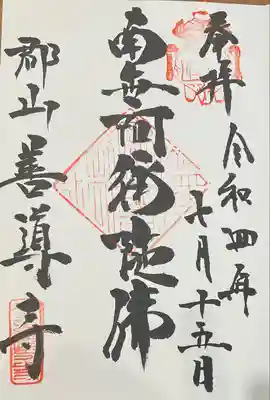 奉拝 令和四年
七月十五日
南無阿弥陀佛
郡山善導寺